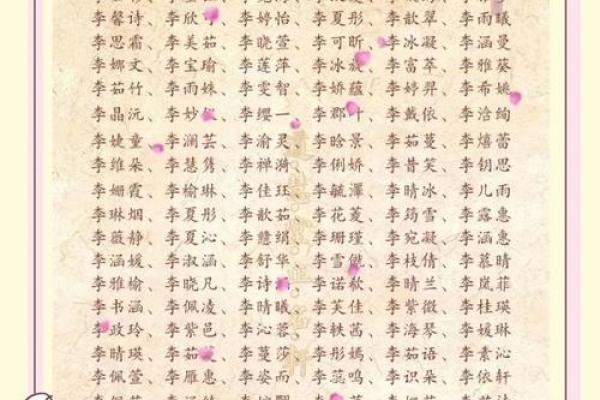 李馨诗、李欣、李婷怡、李夏彤、李歆翠、李雨曦
李思霜、李美茹、李晓萱、李可昕、李冰凝、李涵曼
李娜文、李宝瑜、李莲萍、李冰、李富萃、李雅葵
李茹竹、李雨姝、李雯智、李娇蕴、李婷羿、李希姚
李晶沅、李妙、李缨一、李郡叶、李戴依、李浛绚
李婕童、李澜芸、李渝灵、李晗景、李茹蔓、李熺蕾
李维朵、李慧隽、李禅漪、李俐娇、李昔笑、李钥思
李姗霞、李榆琳、李佳珏、李毓潭、李晴冰、李儿雨
李琳烟、李夏彤、李歆茹、李花菱、李筠雪、李露惠
李薇静、李夏沁、李慧娟、李珊瑾、李宛凝、李涵惠
李涵媛、李淑涵、李舒华、李雪、李枝倩、李慕晴
李雅榆、李晓凡、李诗、李诺欷、李晴兰、李岚菲
李书涵、李佩凌、李晴曦、李芙佳、李紫微、李桂瑛
李政玲、李紫邑、李沁蓉、李轶茜、李海琴、李媛琳
李晴瑛、李茹、李蔓莎、李彤嫣、李茹语、李素沁
李佩萱、李雁惠、李姿而、李蕊鸣、李识朵、李依轩